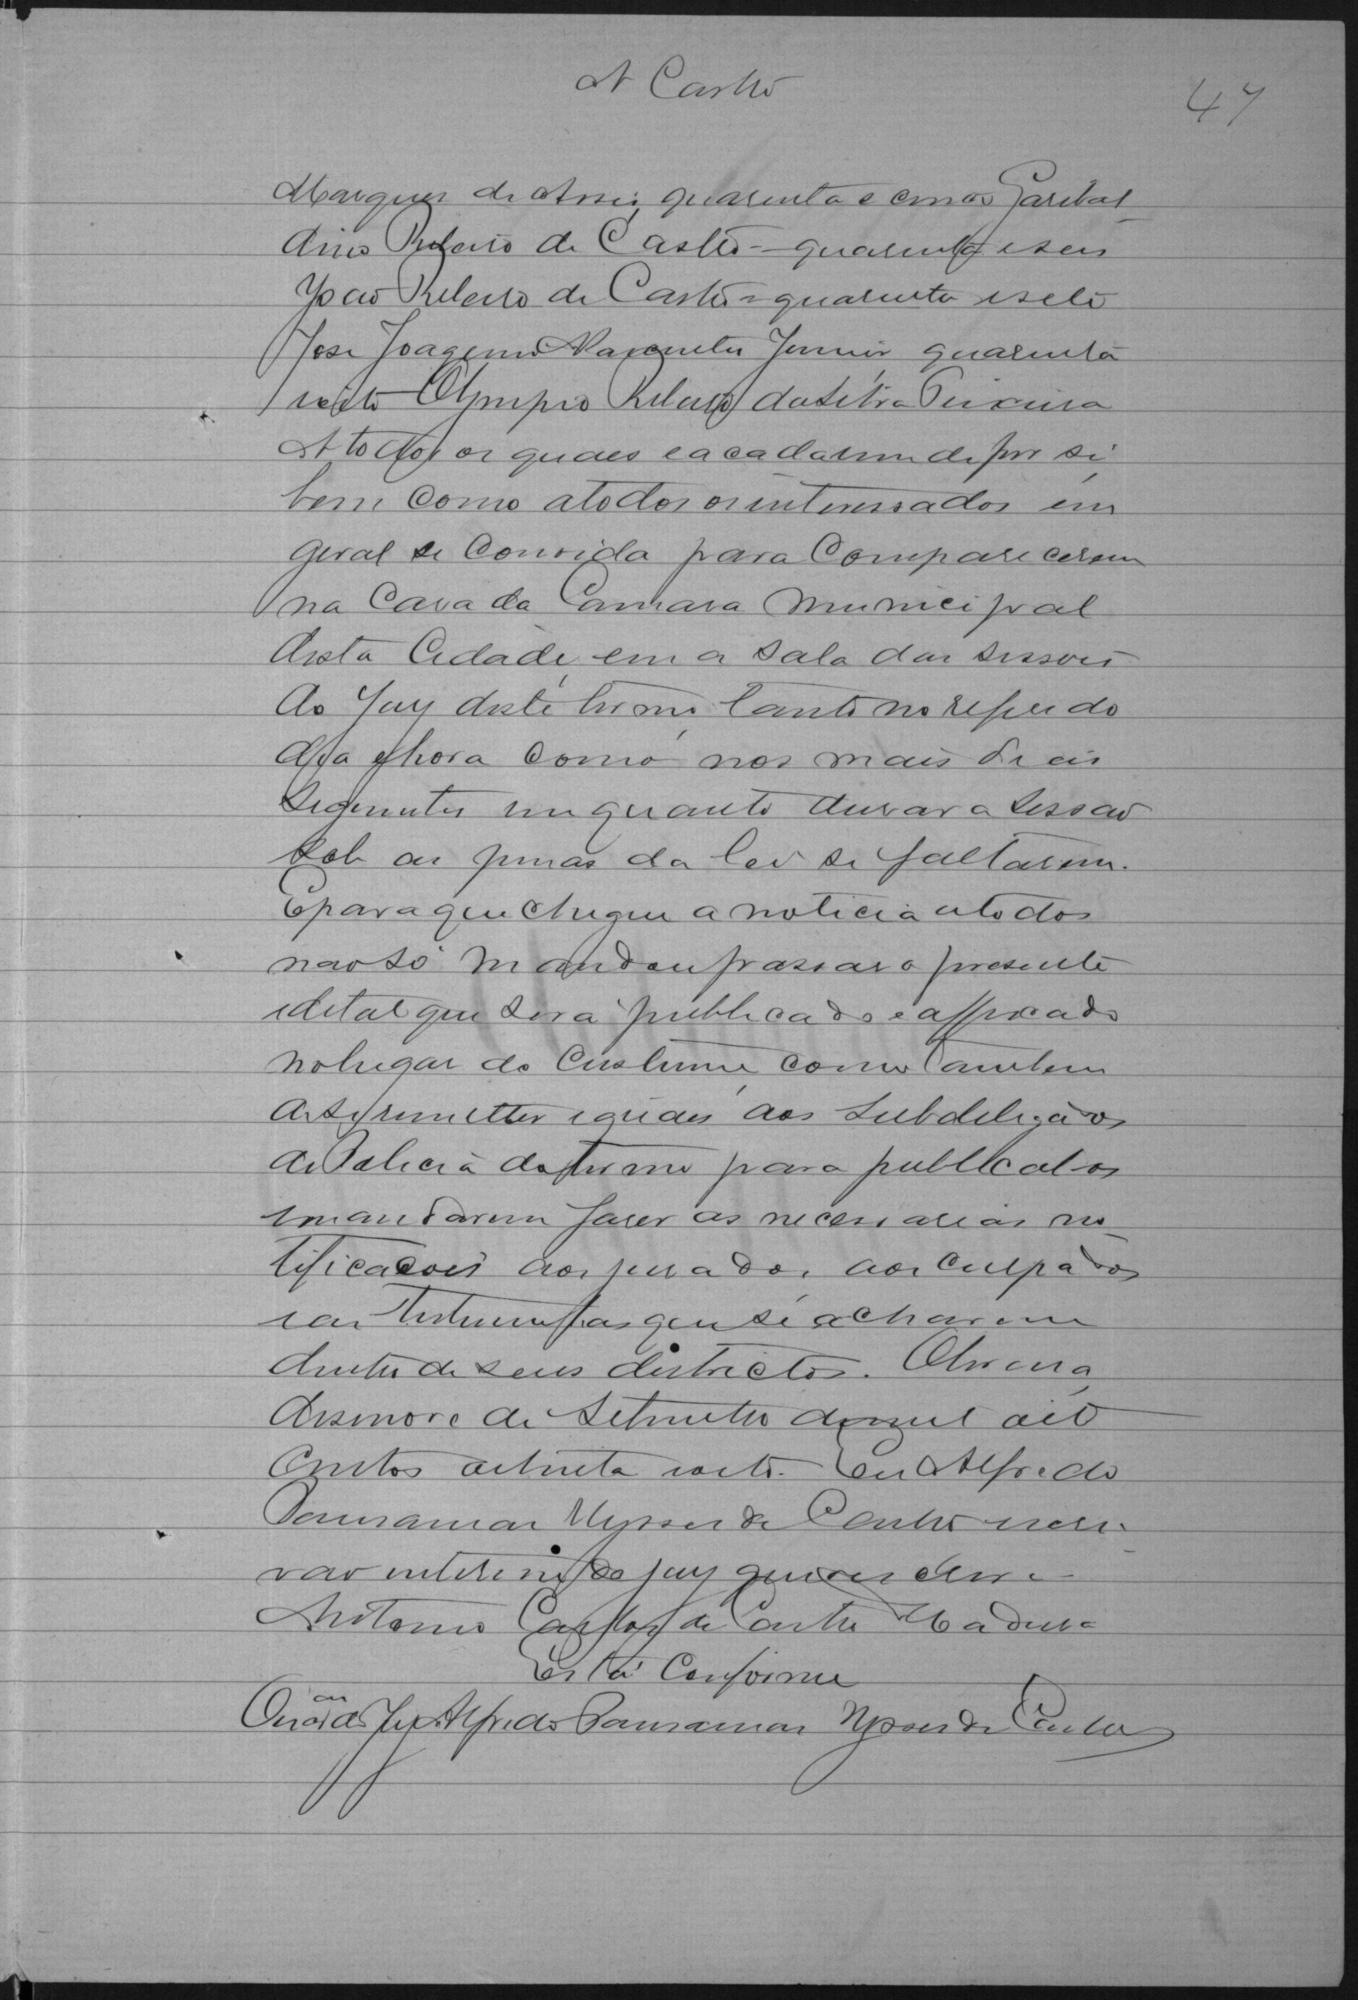 A Castro
47
Marques de Assis, quarenta e cinco Garibal
dino Ribeiro de Castro = quarenta e seis
João Ribeiro de Castro = quarenta e sete
José Joaquim Junior quarenta
e oito Olympio Ribeiro da Silva Teixeira
A todos os quaes e a cada um de por si
bem como a todos os interessados em
geral se convida para comparecerem
na Casa da Camara Municipal
desta Cidade, em a sala das sessoes
do Jury deste termo, tanto no referido
dia e hora como nos mais dias
seguintes em quanto durar a sessão
sob as penas da lei se faltarem.
E para que chegue a noticia a todos
não só mandou passar o presente
edital que será publicado e affixado
no lugar do custume, como tambem
a se remetter iguaes aos subdelegados
de Policia do termo para publical-os
e mandarem faser as necessarias no
tificações aos jurados, aos culpados
e as testemunhas que se acharem
dentro de seus districtos.
desenove de Setembro de mil oito
centos oitenta e oito. Eu Alfredo
Pausanias Ulysses de Castro escri
vão interino do jury que o escrevi =
Antonio Carlos de Castro Madeira
Está conforme
O escrivão do Jury Alfredo Pausanias Ulysses de Castro